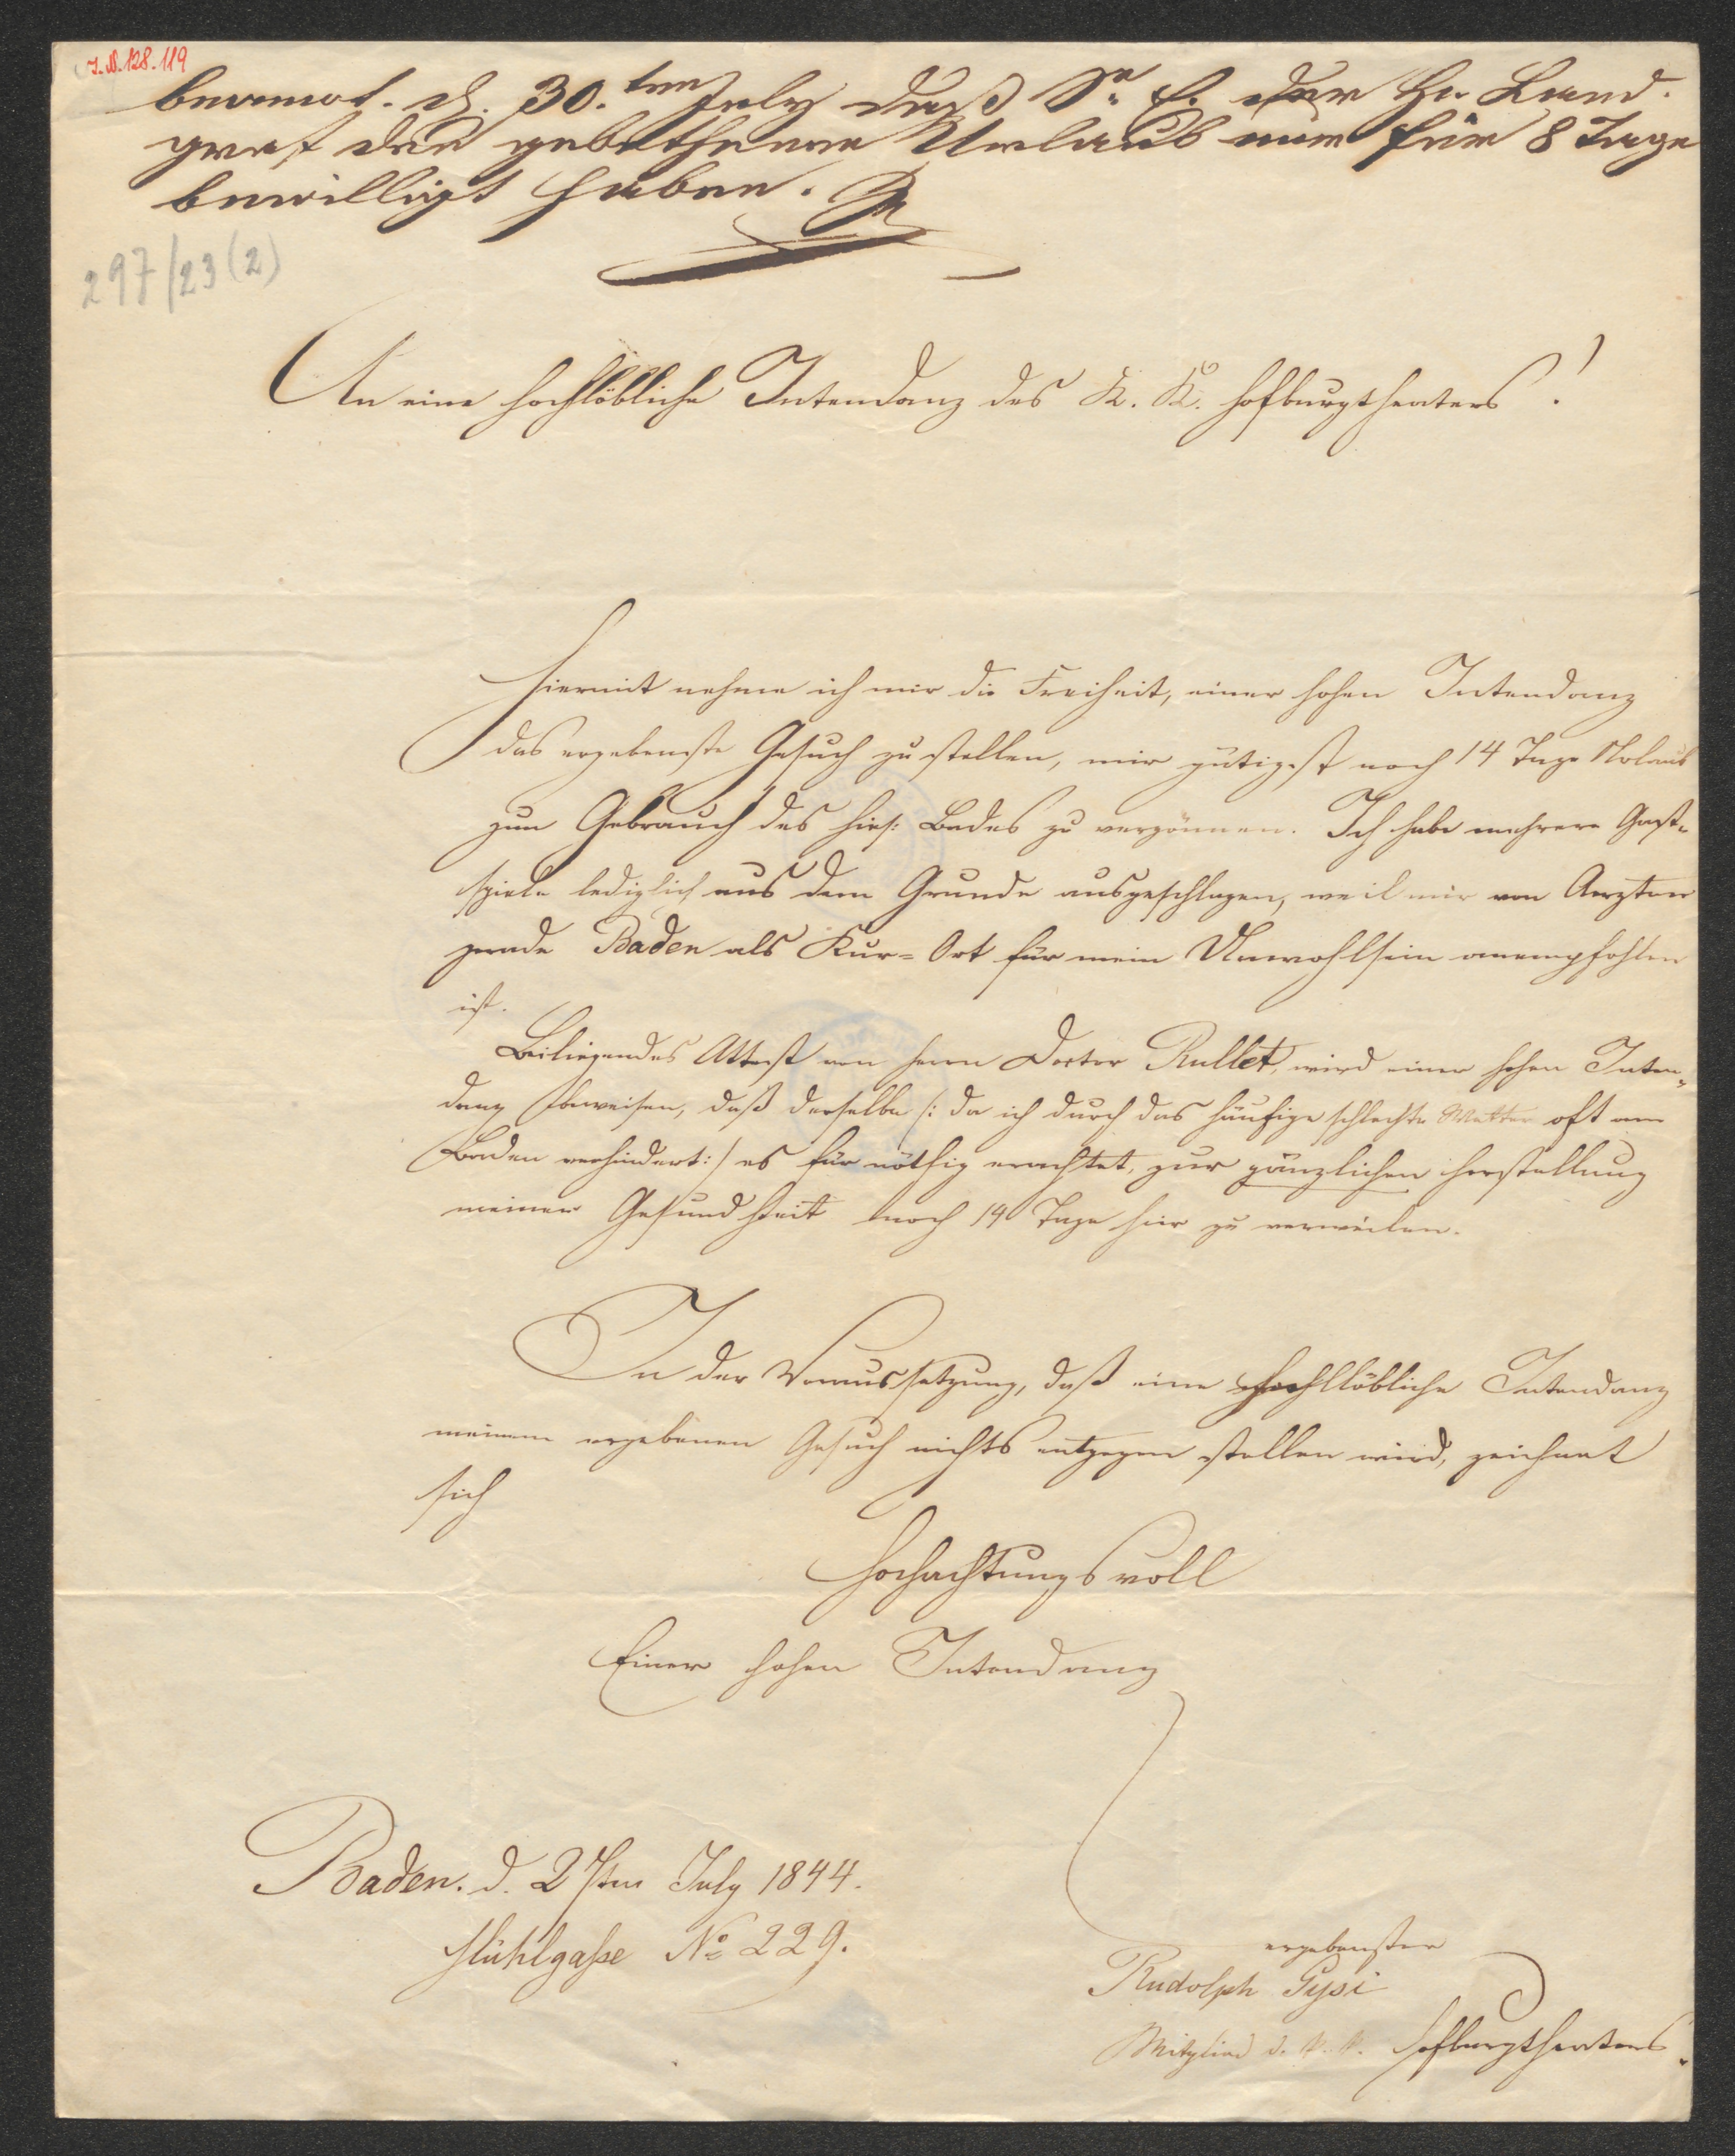 I.N. 128.119
beantwt. d. 30.ten July daß Sr. E. der Hr. Land-
graf den gebethenen Urlaub nur für 8 Tage
bewilligt haben.
297/23(2)
An eine hochlöbliche Intendanz des K. K. Hofburgtheaters!
Hiermit nehme ich mir die Freiheit, einer hohen Intendanz
das ergebenste Gesuch zu stellen, mir gütigst noch 14 Tage Urlaub
zum Gebrauch des hies: Bades zu vergönnen. Ich habe mehrere Gast-
spiele lediglich aus dem Grunde ausgeschlagen, weil mir von Aerzten
gerade Baden als Kur-Ort für mein Unwohlsein anempfohlen
ist.
Beiliegendes Attest von Herrn Doctor Rullet, wird einer hohen Inten-
danz beweisen, daß derselbe /: da ich durch das häufige schlechte Wetter oft am
Baden verhindert :/ es für nöthig erachtet, zur gänzlichen Herstellung
meiner Gesundheit noch 14 Tage hier zu verweilen.
In der Voraussetzung, daß eine hochlöbliche Intendanz
meinem ergebenen Gesuch nichts entgegen stellen wird, zeichnet
sich
Hochachtungsvoll
Einer hohen Intendanz
Baden. d. 27ten July 1844.
Mühlgasse No 229.
ergebenster
Rudolph Gysi
Mitglied d. k. k. Hofburgtheaters.